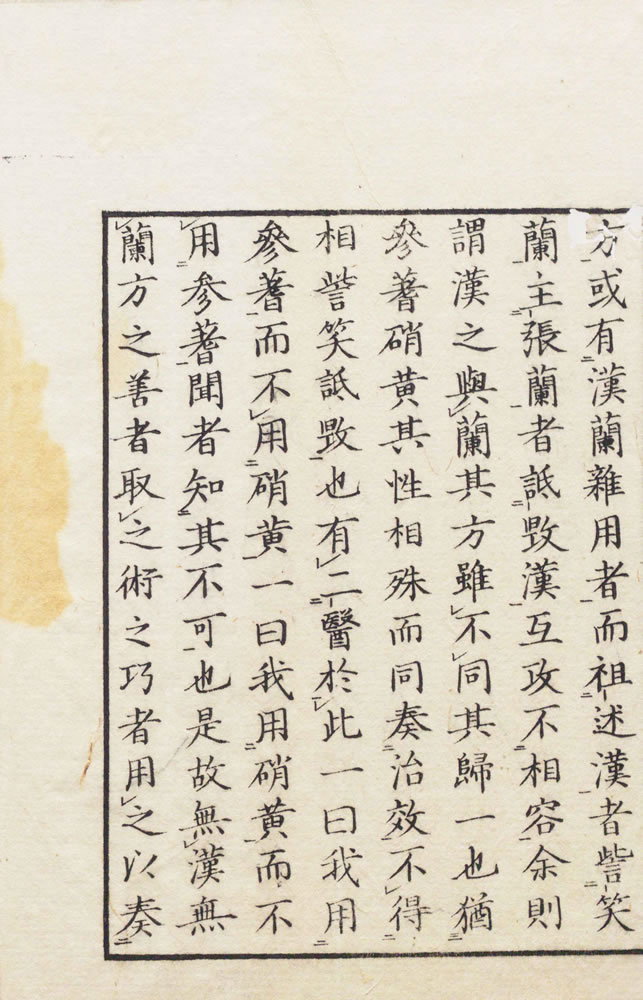 方或有漢蘭雜用者而祖述漢者訾笑
蘭主張蘭者詆毀漢互攻不相容余則
謂漢之與蘭其方雖不同其歸一也猶
參蓍硝黄其性相殊而同奏治效不得
相訾笑詆毀也有二醫於此一曰我用
參蓍而不用硝黄一曰我用硝黄而不
用參蓍聞者知其不可也是故無漢無
蘭方之善者取之術之巧者用之以奏